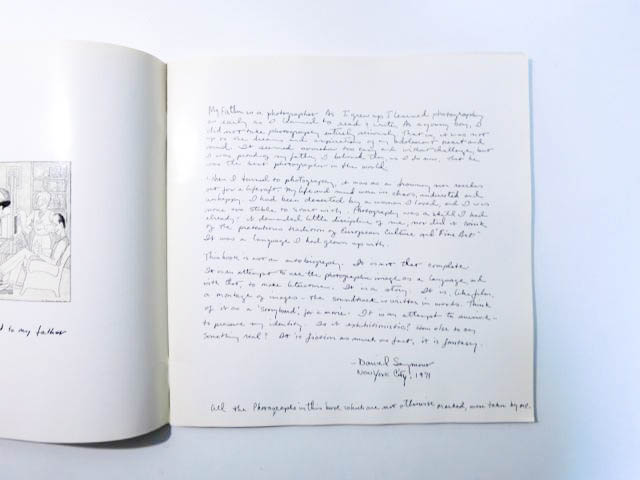 d to my father
My Father is a photographer. As I grew up I learned photography
as early as I learned to read & write. As a young boy, I
did not take photography entirely seriously. That is, it was not
up to the dreams and aspirations of my adolescent heart and
mind. It seemed somehow too easy and without challenge, but
I was proud of my father, I believed then, as I do now, that he
was the best photographer in the world.
When I turned to photography, it was as a drowning man reaches
out for a liferaft. My life and mind were in chaos, undirected and
unhappy. I had been deserted by a woman I loved, and I was
none too stable to start with. Photography was a skill I had
already; it demanded little discipline of me, nor did it smack
of the pretentious tradition of European Culture and "Fine Art"
It was a language I had grown up with.
This book is not an autobiography. It is not that complete.
It is an attempt to use the photographic image as a language and
with that, to make literature. It is a story. It is, like film,
a montage of images - the soundtrack is written in words. Think
of it as a 'storyboard' for a movie. It is an attempt to survive -
to preserve my identity. Is it exhibitionistic? How else to say
something real? It is fiction as much as fact, it is fantasy.
- Daniel Seymour
New York City, 1971
All the Photographs in this book which are not otherwise marked, were taken by me.